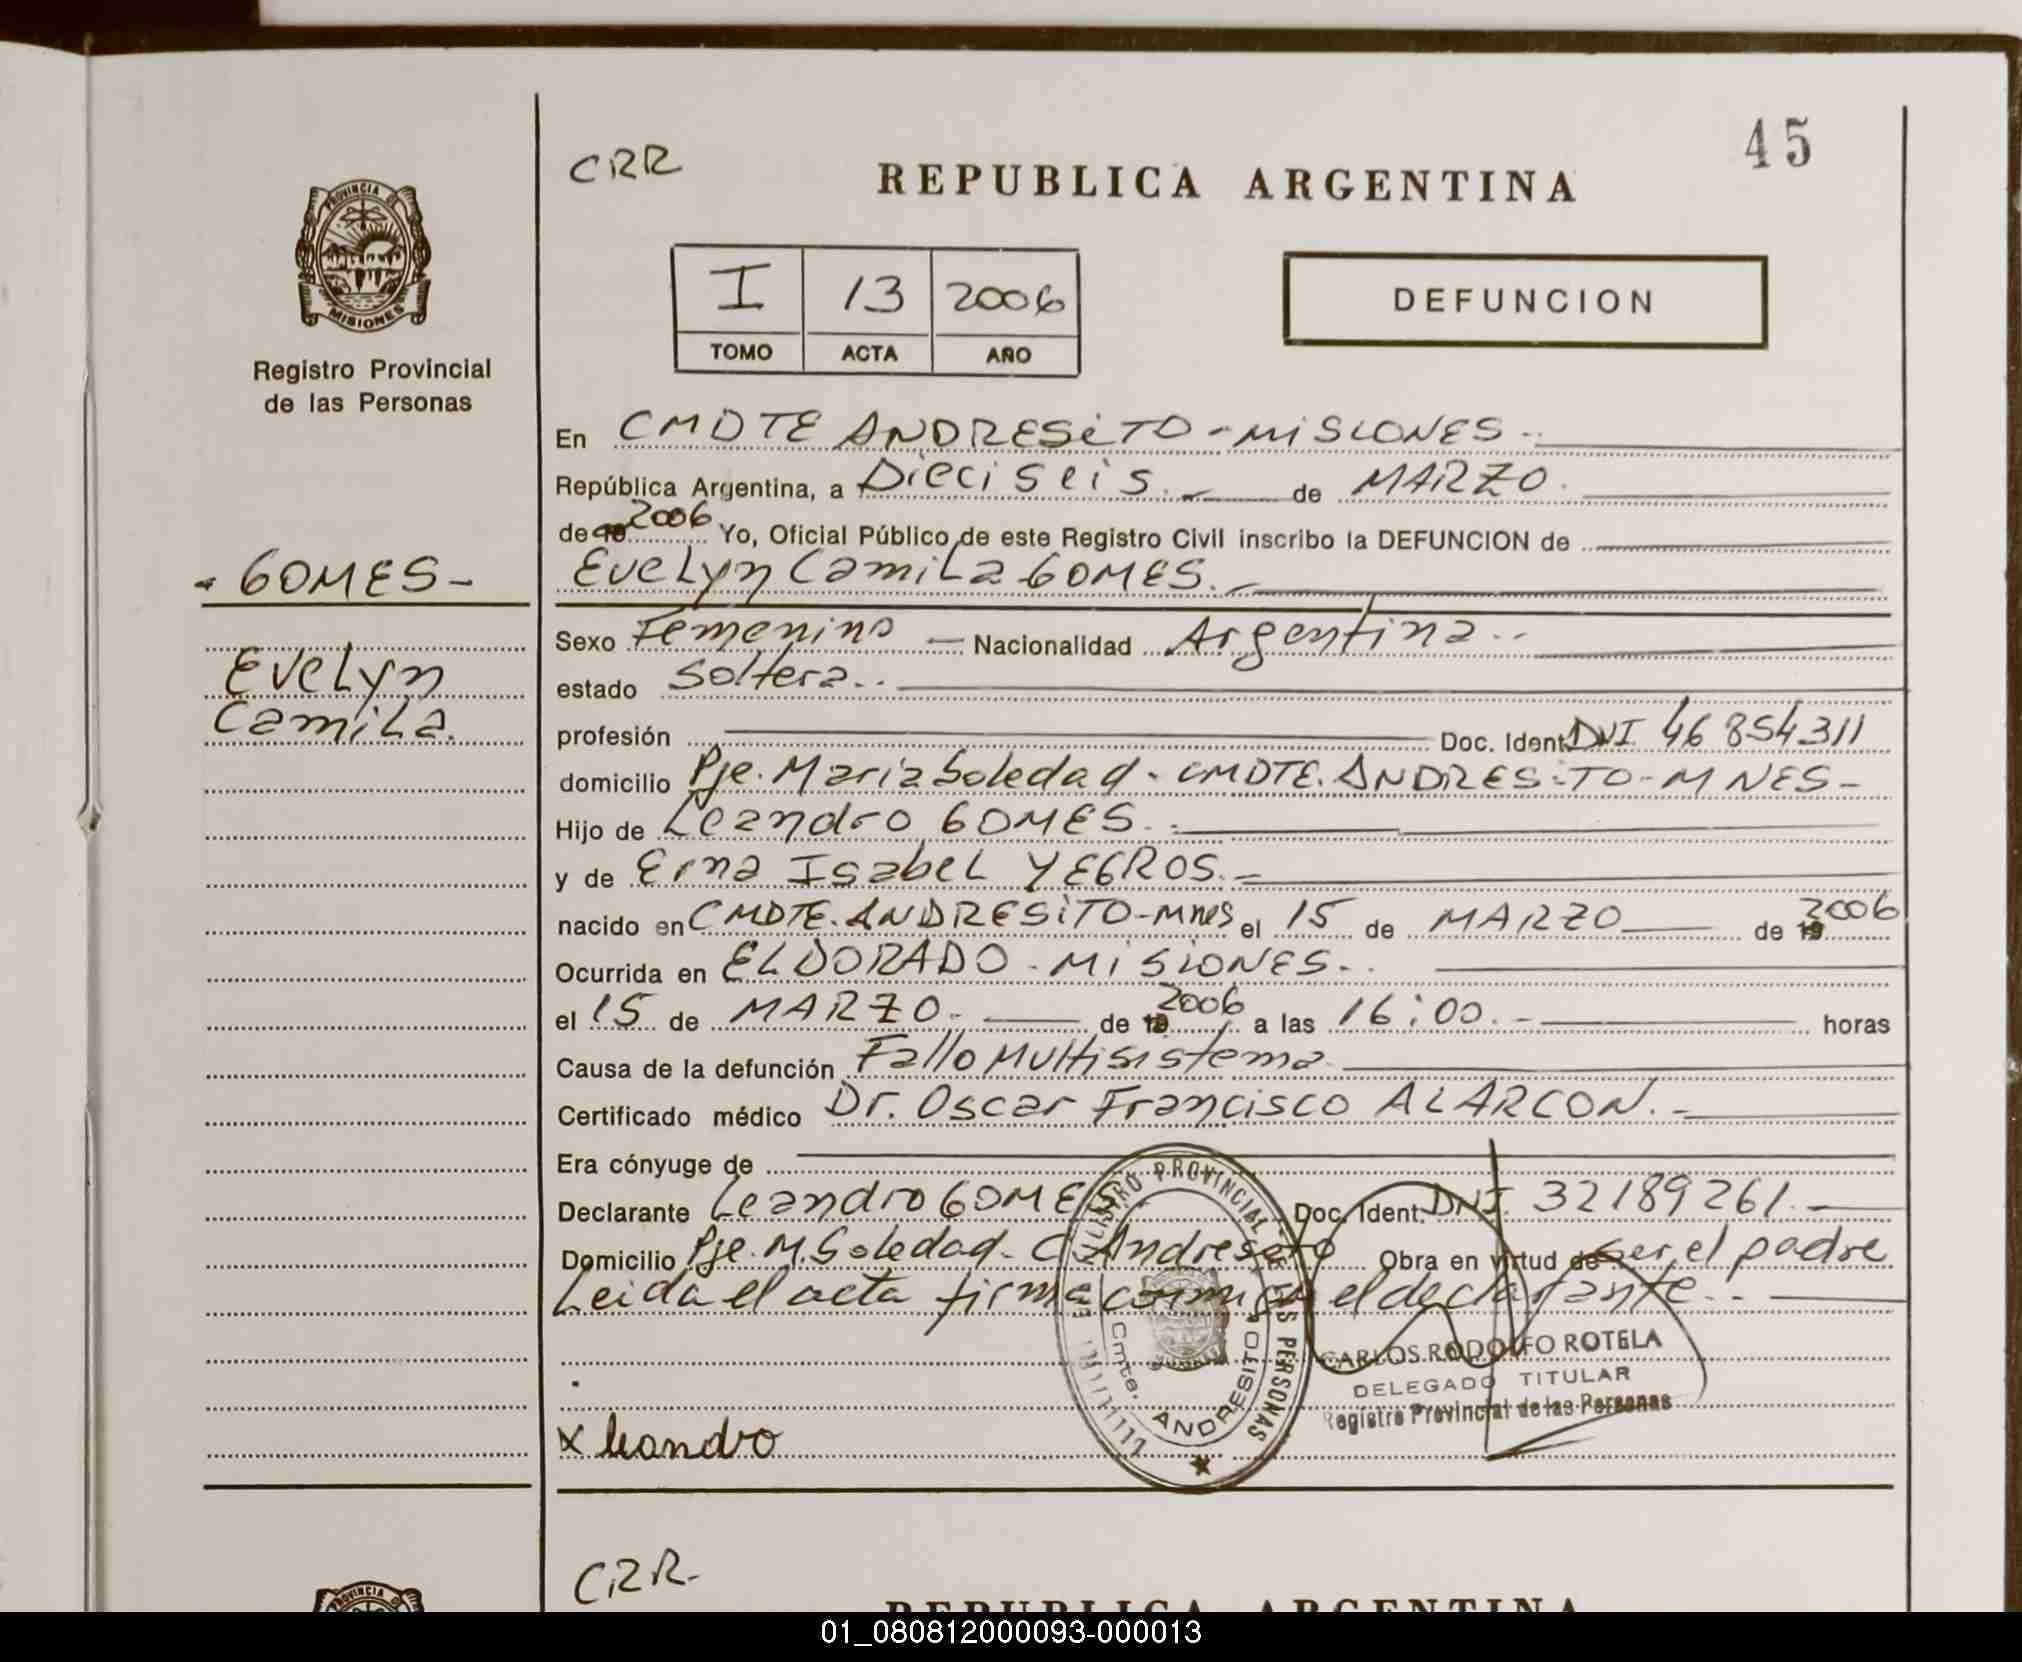 45
CRR
REPUBLICA ARGENTINA
PROVINCIA DE
MISIONES
I 13 2006
TOMO ACTA AÑO
DEFUNCION
Registro Provincial
de las Personas
En CMDTE ANDRESiTO - MiSIONES -
República Argentina, a Dieciseis. - de MARZO.
de 2006 Yo, Oficial Público de este Registro Civil inscribo la DEFUNCION de
- GOMES - Evelyn Camila GOMES. -
Sexo Femenino - Nacionalidad Argentina..
Evelyn estado soltera..
Camila. profesión Doc. Ident. DNI 46 854311
domicilio Pje. Maria Soledad - CMDTE. ANDRESiTO - MNES -
Hijo de Leandro GOMES.
y de Erna Isabel YEGROS. -
nacido en CMDTE. ANDRESiTO - Mnes el 15 de MARZO de 19 2006
Ocurrida en ELDORADO - MiSIONES..
el 15 de MARZO. de 19 2006 a las 16:00. - horas
Causa de la defunción Fallo Multisistema
Certificado médico Dr. Oscar Francisco ALARCON. -
Era cónyuge de
Declarante Leandro GOMES Doc. Ident. DNI. 32189261. -
Domicilio Pje. M. Soledad - C. Andresito Obra en virtud de ser el padre
Leida el acta firma conmigo el declarante..
REGISTRO PROVINCIAL DE LAS PERSONAS
Cmte. ANDRESITO
CARLOS RODOLFO ROTELA
DELEGADO TITULAR
Registro Provincial de las Personas
x leandro
CRR-
PROVINCIA
REPUBLICA ARGENTINA
01_080812000093-000013